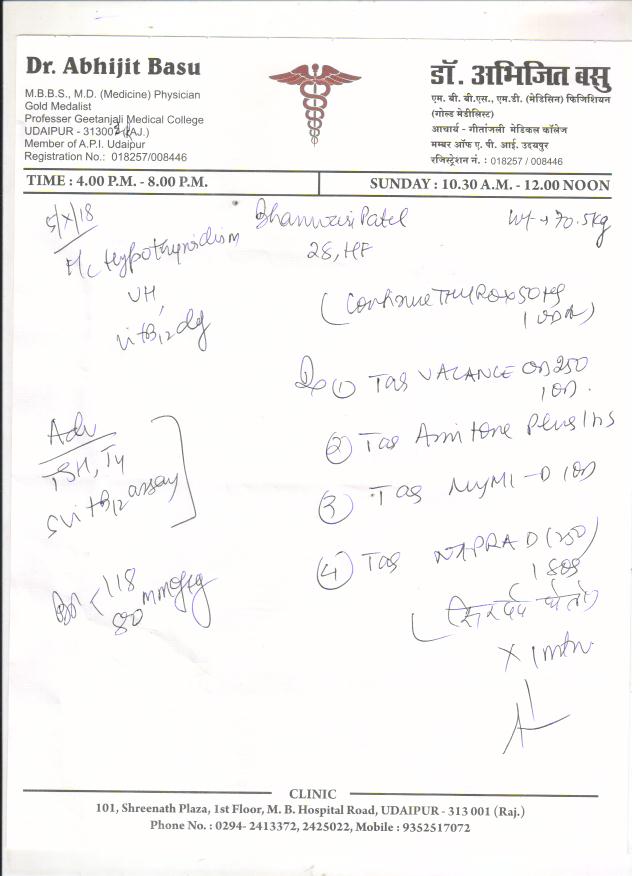 Dr. Abhijit Basu
M.B.B.S., M.D. (Medicine) Physician
Gold Medalist
Professer Geetanjali Medical College
UDAIPUR - 313002 (RAJ.)
Member of A.P.I. Udaipur
Registration No.: 018257/008446
डॉ. अभिजित बसु
एम. बी. बी.एस., एम.डी. (मेडिसिन) फिजिशियन
(गोल्ड मेडीलिस्ट)
आचार्य - गीतांजली मेडिकल कॉलेज
मम्बर ऑफ ए. पी. आई. उदयपुर
रजिस्ट्रेशन नं. : 018257 / 008446
TIME : 4.00 P.M. - 8.00 P.M.
SUNDAY : 10.30 A.M. - 12.00 NOON
5/X/18
Bhanwari Patel
Wt → 70.5kg
28, HF
H/c Hypothyroidism
VH,
vit B12 df
(Continue THYROX 50 µg
1 OD
Rx ① Tab VALANCE OD 250
1 OD.
② Tab Amitone Plus 1 HS
③ Tab NUMI-D 1 OD
④ Tab NAPRA D (250)
1 SOS
(सिरदर्द होतो)
X 1 mth
Adv
TSH, T4
S vit B12 assay
BP < 118
80 mmHg
CLINIC
101, Shreenath Plaza, 1st Floor, M. B. Hospital Road, UDAIPUR - 313 001 (Raj.)
Phone No. : 0294- 2413372, 2425022, Mobile : 9352517072